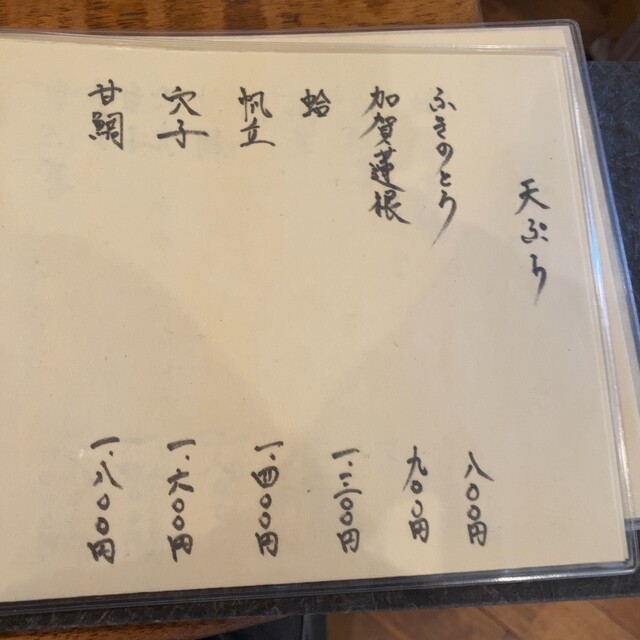 天ぷら
ふきのとう 八〇〇円
加賀蓮根 九〇〇円
蛤 一.二〇〇円
帆立 一.四〇〇円
穴子 一.六〇〇円
甘鯛 一.八〇〇円